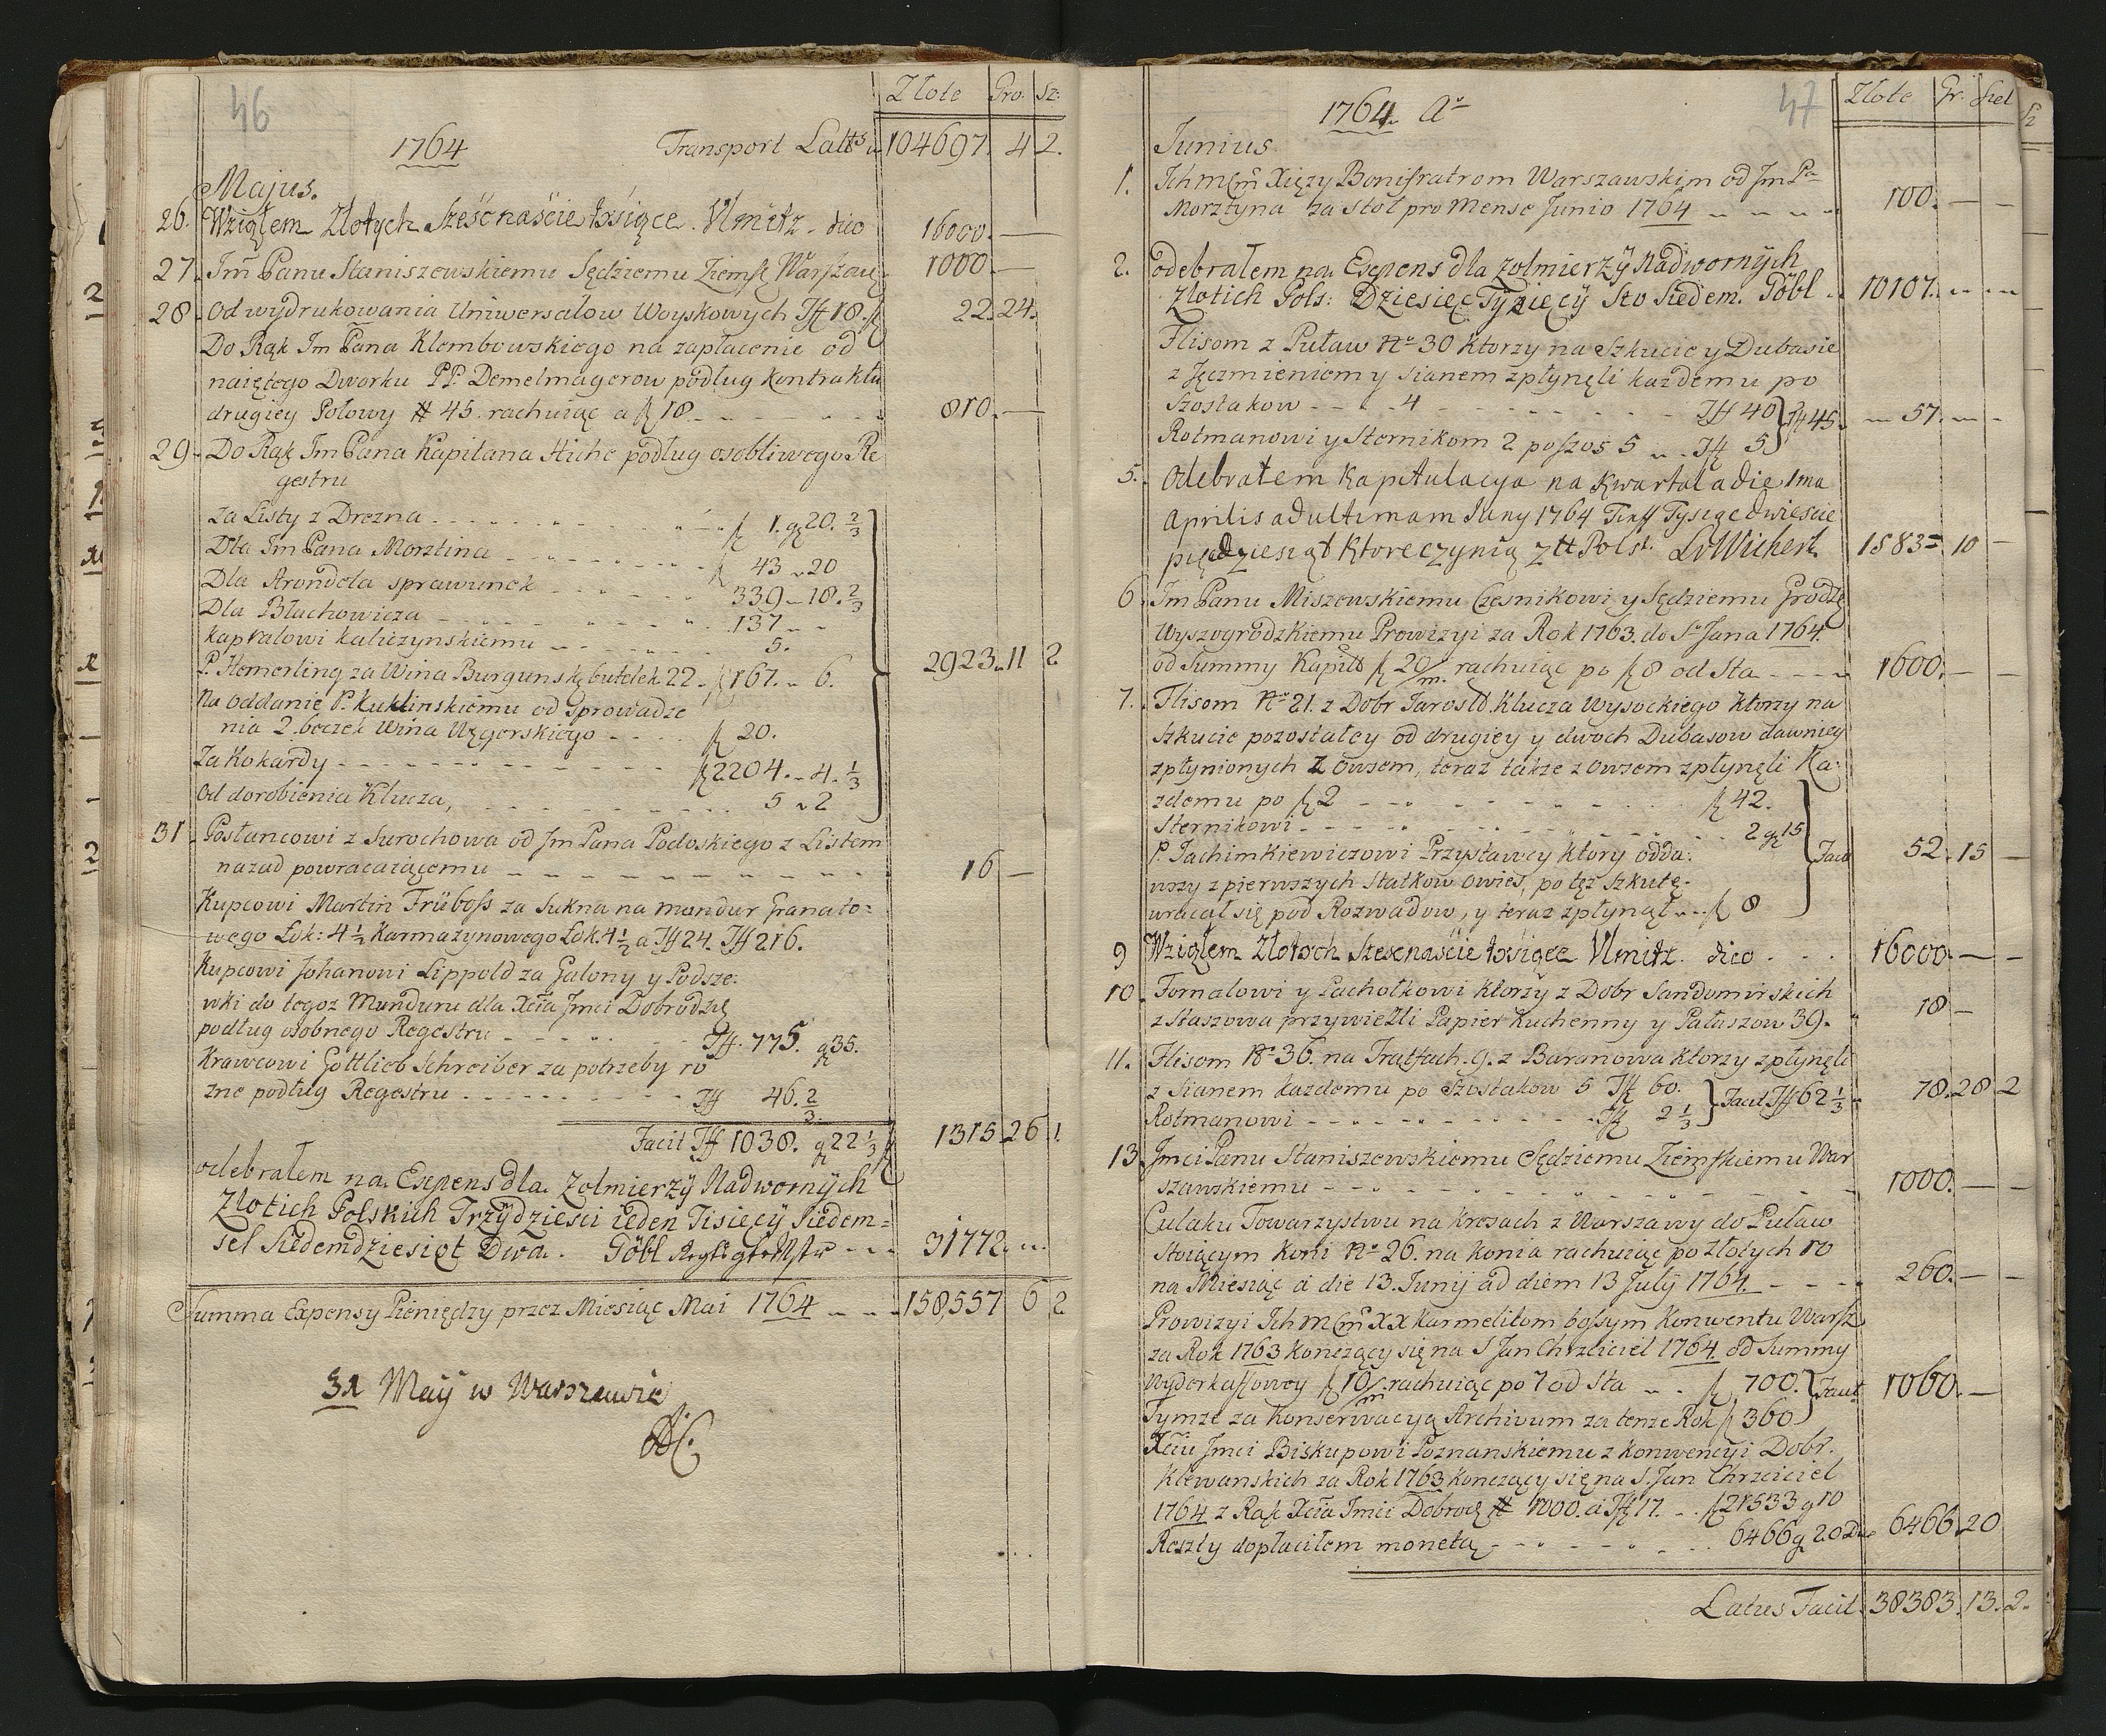 46
Złote Gro. Sz:
1764 Transport Latts 104697. 4 2.
Majus.
26. Wziąłem Złotych Sześćnaście tysięce. Vlmitz. dico 16000. —
27. Jm̃ Panu Staniszewskiemu Sędziemu Ziemsk Warszaw 1000. —
28. Od wydrukowania Uniwersałow Woyskowych Tff 18. 22. 24.
Do Rąk Jm Pana Klembowskiego na zapłacenie od
naiętego Dworku PP. Demelmagerow podług Kontraktu
drugiey Połowy # 45. rachuiąc a f 18 810. —
29. Do Rąk Jm Pana Kapitana Hiche podług osobliwego Re
gestru
za Listy z Drezna f 1. gr 20. 2/3
Dla Jm Pana Morztina f 43 20
Dla Arondela sprawunek 339 18. 2/3
Dla Błachowicza 137
kapralowi kaliczynskiemu 5.
P. Hemerling za Wina Burgunską butelek 22 f 167. 6. 2923. 11 2
Na oddanie P. Kuklinskiemu od sprowadze
nia 2. beczek Wina Węgerskiego f 20.
Za Kokardy f 2204. 4. 1/3
Od dorobienia Klucza, 5 2
31. Posłancowi z Surochowa od Jm Pana Podoskiego z Listem
nazad powracaiącemu 16 —
Kupcowi Martin Früboss za Sukna na mundur Granato=
wego Łok: 4 1/2 Karmazynowego Łok. 4 1/2 a Tff 24. Tff 216.
Kupcowi Johanowi Lippold za Galony y Podsze:
wki do tegoz Munduru dla Xcia Jmci Dobrodzę
podług osobnego Regestru Tff. 775. gr 35.
Krawcowi Gottlieb Schreiber za potrzeby ro
zne podług Regestru Tff 46. 2/3
Facit Tff 1038. gr 22 1/3 1315. 26 1.
odebrałem na. Expens dla. Zolmierzÿ Nadwornÿch
Zlotich Polskich Trzÿdziesci ieden Tisiecÿ Siedem=
set Siedemdziesiąt Dwa. Göbl 31772.
Summa Expensy Pieniędzy przez Miesiąc Mai 1764 158,557 6 2
31 Maÿ w Warszawie
47
1764. Ao Złote Gr. Szel
Junius.
1. Ichm[m̃ Xięzy Bonifratrom Warszawskim od Jm Pa
Morztyna za stoł pro Mense Junio 1764 100. — —
2. odebrałem na. Expens dla Zolmierzÿ Nadwornÿch
Zlotich Pols: Dziesięc Tÿzięcÿ Sto Siedem. Göbl 10107.
Flisom z Puław No 30 Ktorzy na Szkucie y Dubasie
z Jęczmieniem y sianem zpłynęli kazdemu po
Szostakow 4 Tff 40 Tff 45. 57.
Rotmanowi y Sternikom 2 po szos 5 Tff 5
5. Odebrałem Kapitulacya na Kwartał a die 1ma
Aprilis ad ultimam Juny 1764 Tinff Tysiąc dwiescie
pięcdziesiąt Ktore czynią Ztt Polst. LvWichert 1583. 10 —
6. Jm Panu Miszewskiemu Czesnikowi y Sędziemu Grodzę
Wyszogrodzkiemu Prowizyi za Rok 1763. do So Jana 1764.
od Summy Kapitł f 20/m. rachuiąc po f 8 od Sta 1600. — —
7. Flisom No 21. z Dobr Jarosłd. Klucza Wysockiego Ktorzy na
szkucie pozostałey od drugiey y dwoch Dubasow dawniey
zpłynionych z owsem, teraz takze z owsem zpłynęli Ka:
zdemu po f 2 f 42.
Sternikowi 2 gr 15
P. Jachimkiewiczowi Przystawcy Ktory odda: Facit 52. 15 —
wszy z pierwszych statkow owies, po tęż szkutę.
wracał się pod Rozwadow, y teraz zpłynął f 8
9 Wziąłem Złotoch Szescnaście tysięce Vlmitz. dico 16000. — —
10. Fornalowi y Pachołkowi Ktorzy z Dobr Sandomirskich
z Staszowa przywiezli Papier Kuchenny y Pałaszow 39. 18 —
11. Flisom No 36. na Tratfach. 9. z Baranowa ktorzy zpłynęli
z Sianem kazdemu po Szostakow 5 Tff 60. Facit Tff 62 1/3 78. 28 2
Rotmanowi Tff 2 1/3
13. Jmci Panu Staniszewskiemu Sędziemu Ziemskiemu War
szawskiemu 1000. — —
Cułaku Towarzystwu na Kresach z Warszawy do Puław
stoiącym Koni No 26. na konia rachuiąc po złotych 10
na Miesiąc a die 13. Junij ad diem 13 Julÿ 1764. 260. — —
Prowizyi Ichm[m̃ XX Karmelitom bossym Konwentu Warsz
za Rok 1763 Konczący się na S Jan Chrzciciel 1764. od Summy
Wyderkaffowey f 10/m. rachuiąc po 7 od Sta f 700. Facit 1060. —
Tymze za Konserwacyą Archivum za tenze Rok f 360
Xciu Jmci Biskupowi Poznanskiemu z Konwencyi Dobr.
Klewanskich za Rok 1763 Konczący się na S. Jan Chrzciciel
1764 z Rąk Xcia Jmci Dobrodz # 1000. a Tff 17. f 21533 g 10
Reszty dopłaciłem monetą 6466 g 20 6466. 20
Latus Facit 38383. 13. 2.